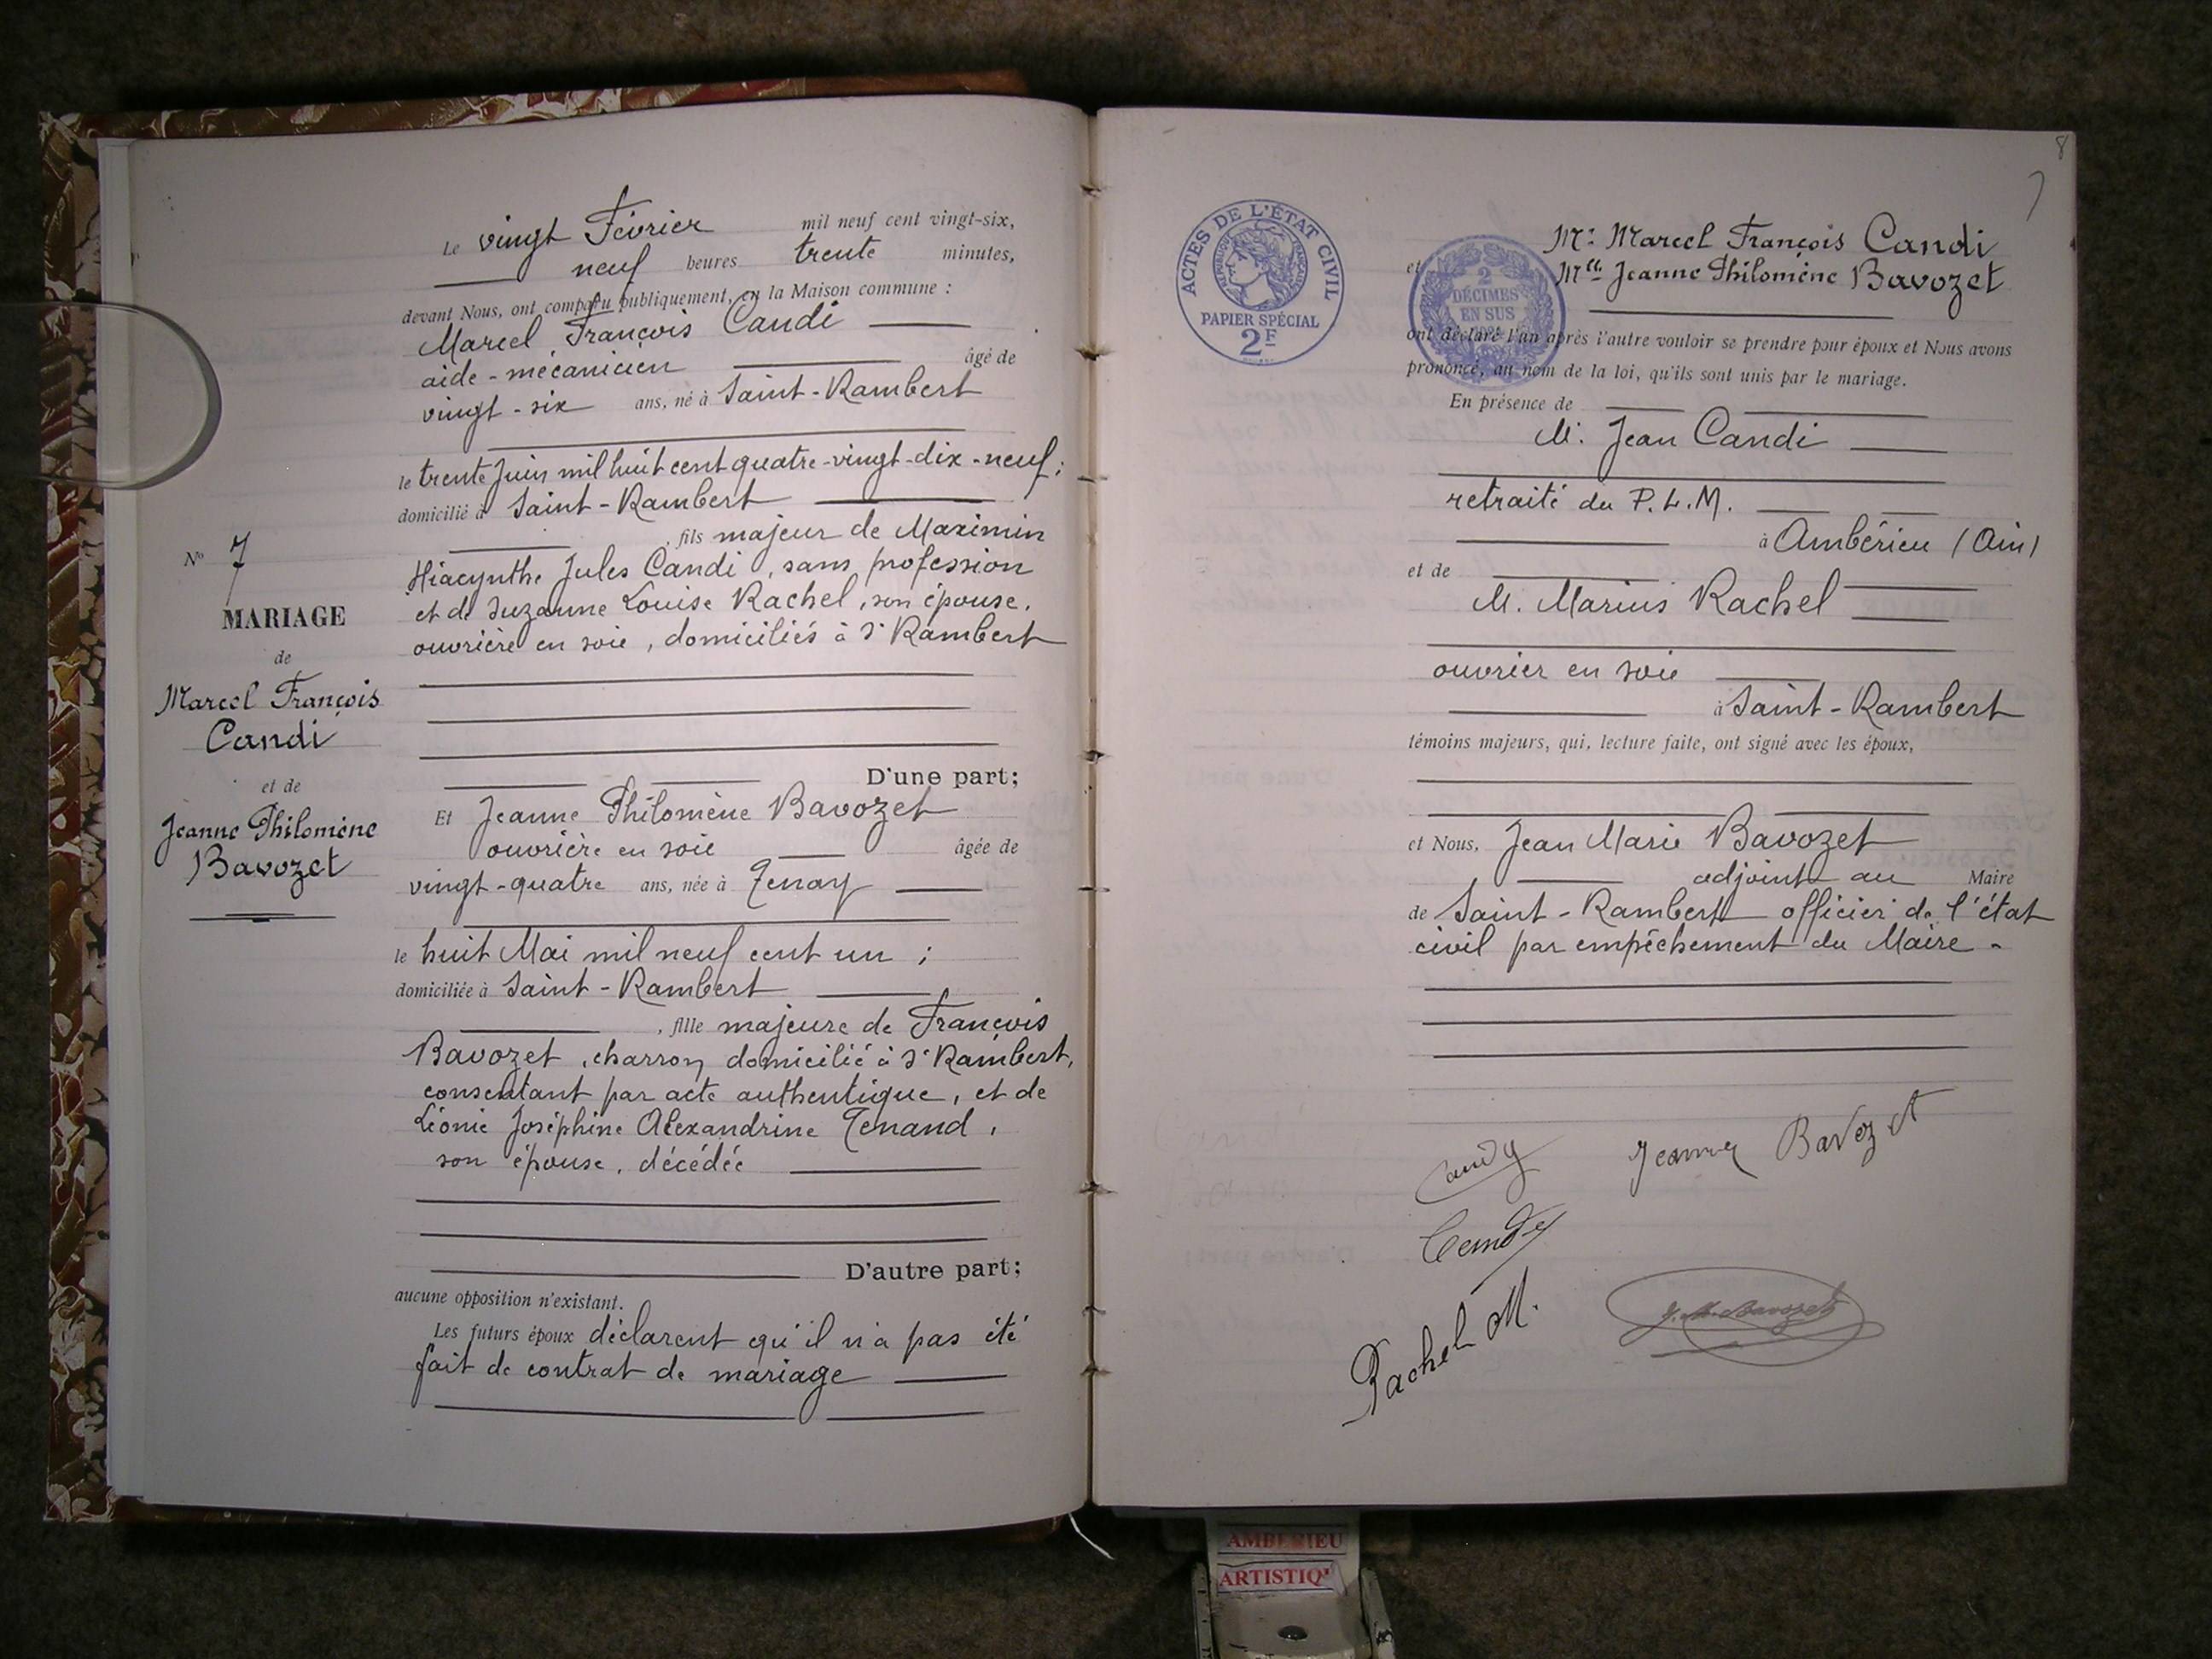 Le vingt Février mil neuf cent vingt-six,
neuf heures trente minutes,
devant Nous, ont comparu publiquement, en la Maison commune :
Marcel François Candi
aide-mécanicien âgé de
vingt-six ans, né à Saint-Rambert
le trente Juin mil huit cent quatre-vingt-dix-neuf ;
domicilié à Saint-Rambert
, fils majeur de Maximin
Hiacynthe Jules Candi, sans profession
et de Suzanne Louise Rachel, son épouse,
ouvrière en soie, domiciliés à St Rambert
D'une part;
Et Jeanne Philomène Bavozet
ouvrière en soie âgée de
vingt-quatre ans, née à Tenay
le huit Mai mil neuf cent un ;
domiciliée à Saint-Rambert
, fille majeure de François
Bavozet, charron, domicilié à St Rambert,
consentant par acte authentique, et de
Léonie Joséphine Alexandrine Tenand,
son épouse, décédée
D'autre part;
aucune opposition n'existant.
Les futurs époux déclarent qu'il n'a pas été
fait de contrat de mariage
No 7
MARIAGE
de
Marcel François
Candi
et de
Jeanne Philomène
Bavozet
8
7
ACTES DE L'ÉTAT CIVIL
RÉPUBLIQUE FRANÇAISE
PAPIER SPÉCIAL
2F
2
DÉCIMES
EN SUS
Mr Marcel François Candi
et Mlle Jeanne Philomène Bavozet
ont déclaré l'un après l'autre vouloir se prendre pour époux et Nous avons
prononcé, au nom de la loi, qu'ils sont unis par le mariage.
En présence de
M. Jean Candi
retraité du P.L.M.
à Ambérieu (Ain)
et de
M. Marius Rachel
ouvrier en soie
à Saint-Rambert
témoins majeurs, qui, lecture faite, ont signé avec les époux,
et Nous, Jean Marie Bavozet
adjoint au Maire
de Saint-Rambert officier de l'état
civil par empêchement du Maire.
Candy Jeanne Bavozet
Candy
Rachel M.
J. M. Bavozet
AMBERIEU
ARTISTIQ